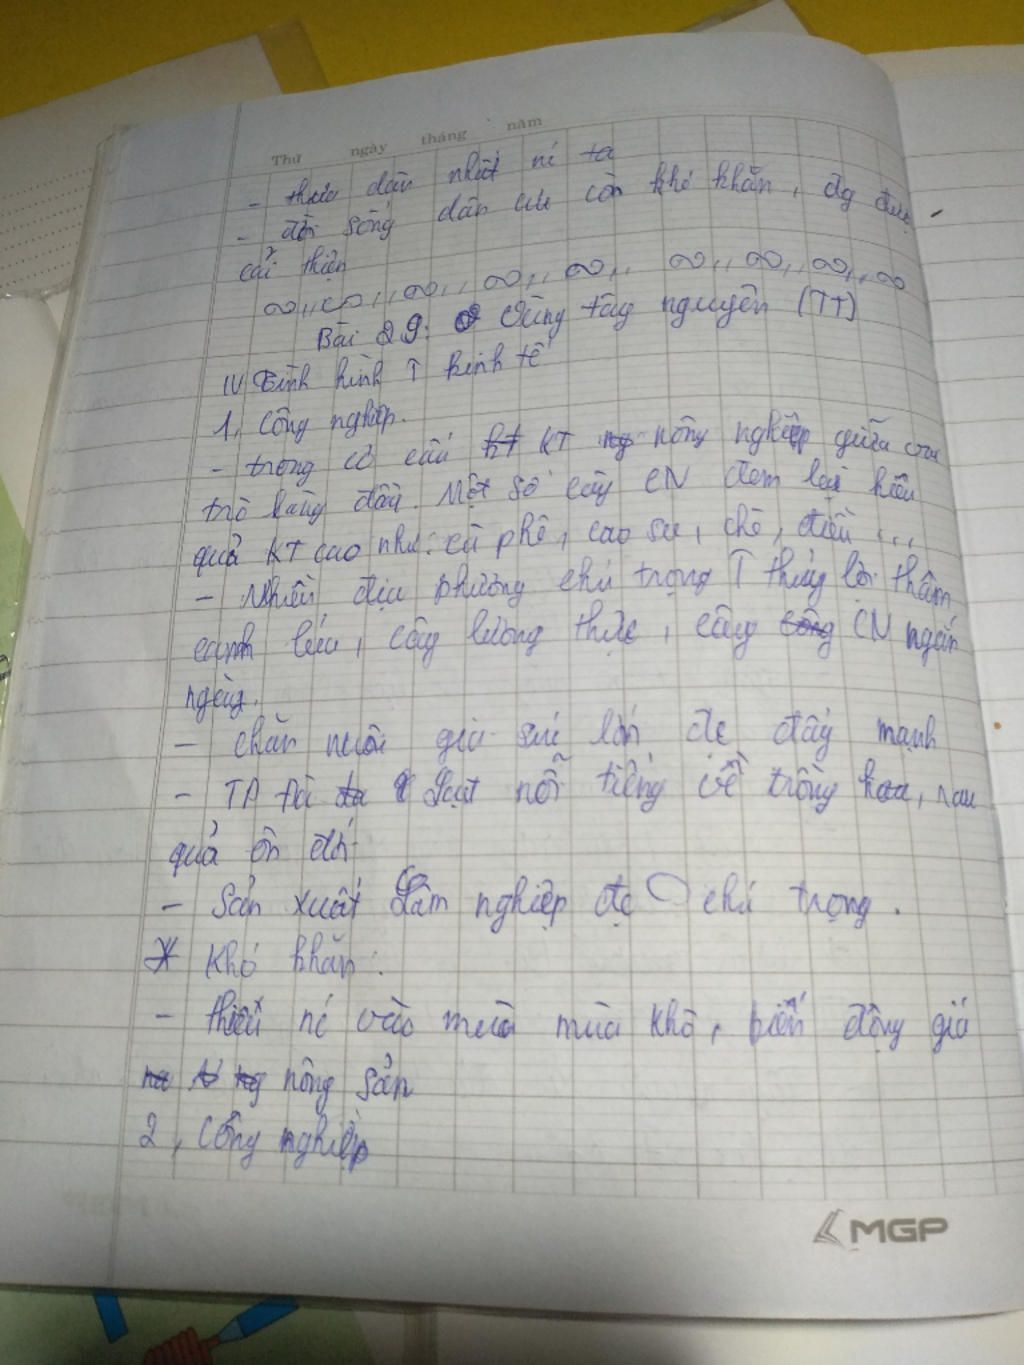 Thứ ngày tháng năm
- thưa dân nhất nc ta
- đời sống dân cư còn khó khăn, đg được
cải thiện
Bài 29: Vùng tây nguyên (TT)
IV Tình hình ↑ kinh tế
1, Công nghiệp.
- trong cơ cấu KT nông nghiệp giữa vai
trò hàng đầu. Một số cây CN đem lại hiệu
quả KT cao như: cà phê, cao su, chè, điều ...
- Nhiều địa phương chú trọng ↑ thủy lợi thâm
canh lúa, cây lương thực, cây CN ngắn
ngày.
- chăn nuôi gia súc lớn đc đẩy mạnh
- TP Đà Lạt nổi tiếng về trồng hoa, rau
quả ôn đới
- Sản xuất Lâm nghiệp đc chú trọng.
* Khó khăn:
- thiếu nc vào mùa khô, biến động giá
nông sản
2, Công nghiệp
MGP